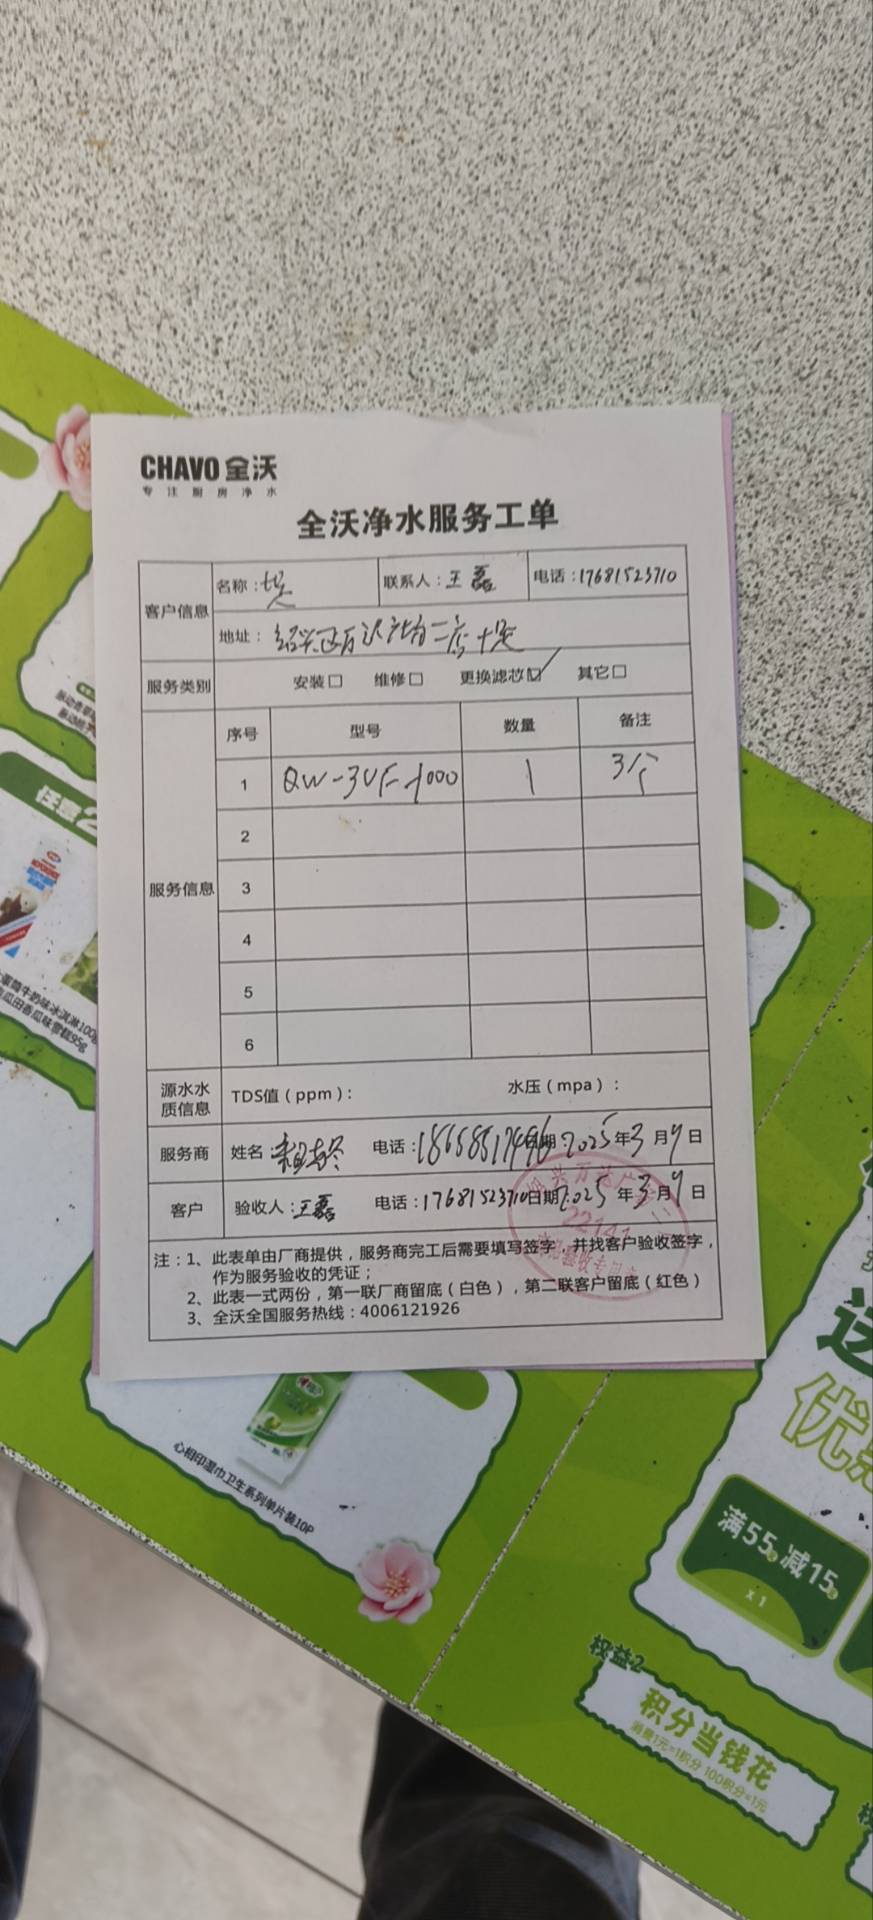 CHAVO 全沃
专注厨房净水
全沃净水服务工单
客户信息
名称：
联系人：王磊
电话：17681523710
地址：绍兴 万达广场二店
服务类别
安装□ 维修□ 更换滤芯☑ 其它□
服务信息
序号 型号 数量 备注
1 QW-3UF-1000 1 3个
2
3
4
5
6
源水水质信息
TDS值（ppm）： 水压（mpa）：
服务商 姓名： 电话：18658517496 日期：2025年3月9日
客户 验收人：王磊 电话：17681523710 日期：2025年3月9日
注：1、此表单由厂商提供，服务商完工后需要填写签字，并找客户验收签字，
作为服务验收的凭证；
2、此表一式两份，第一联厂商留底（白色），第二联客户留底（红色）
3、全沃全国服务热线：4006121926
22141
任意2
蛋筒牛奶味冰淇淋100g
瓜田香瓜味雪糕95g
心相印湿巾卫生系列单片装10P
优
满55元减15元
x1
权益2
积分当钱花
消费1元=1积分 100积分=1元